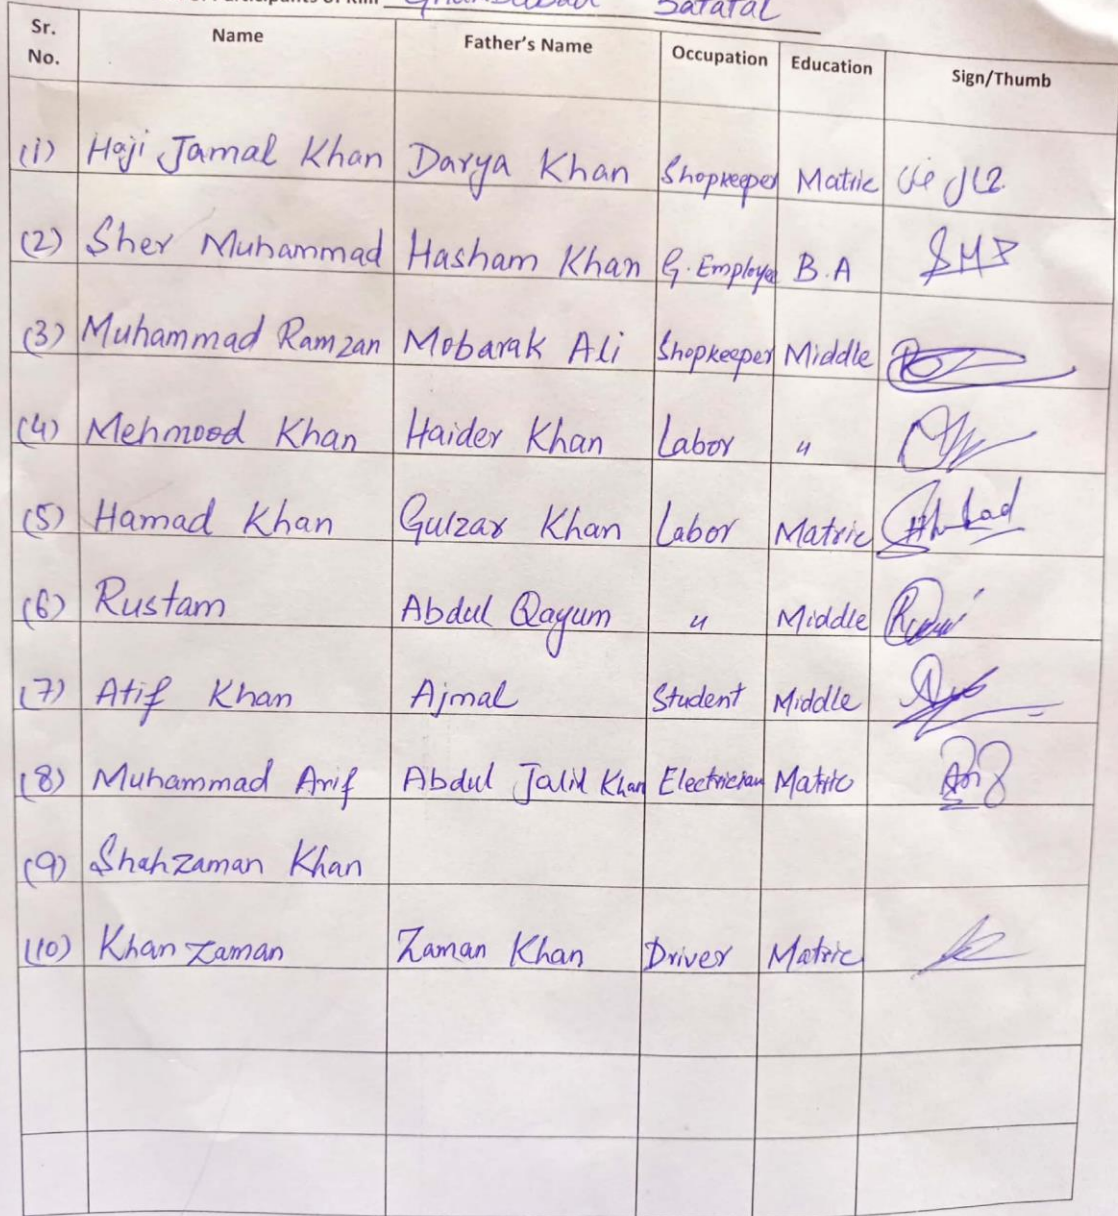 Satafal
Sr. No. Name Father's Name Occupation Education Sign/Thumb
(1) Haji Jamal Khan Darya Khan Shopkeeper Matric جمال خان
(2) Sher Muhammad Hasham Khan G. Employee B.A SMP
(3) Muhammad Ramzan Mobarak Ali Shopkeeper Middle
(4) Mehmood Khan Haider Khan Labor "
(5) Hamad Khan Gulzar Khan Labor Matric
(6) Rustam Abdul Qayum " Middle
(7) Atif Khan Ajmal Student Middle
(8) Muhammad Arif Abdul Jalil Khan Electrician Matric
(9) Shahzaman Khan
(10) Khan Zaman Zaman Khan Driver Matric